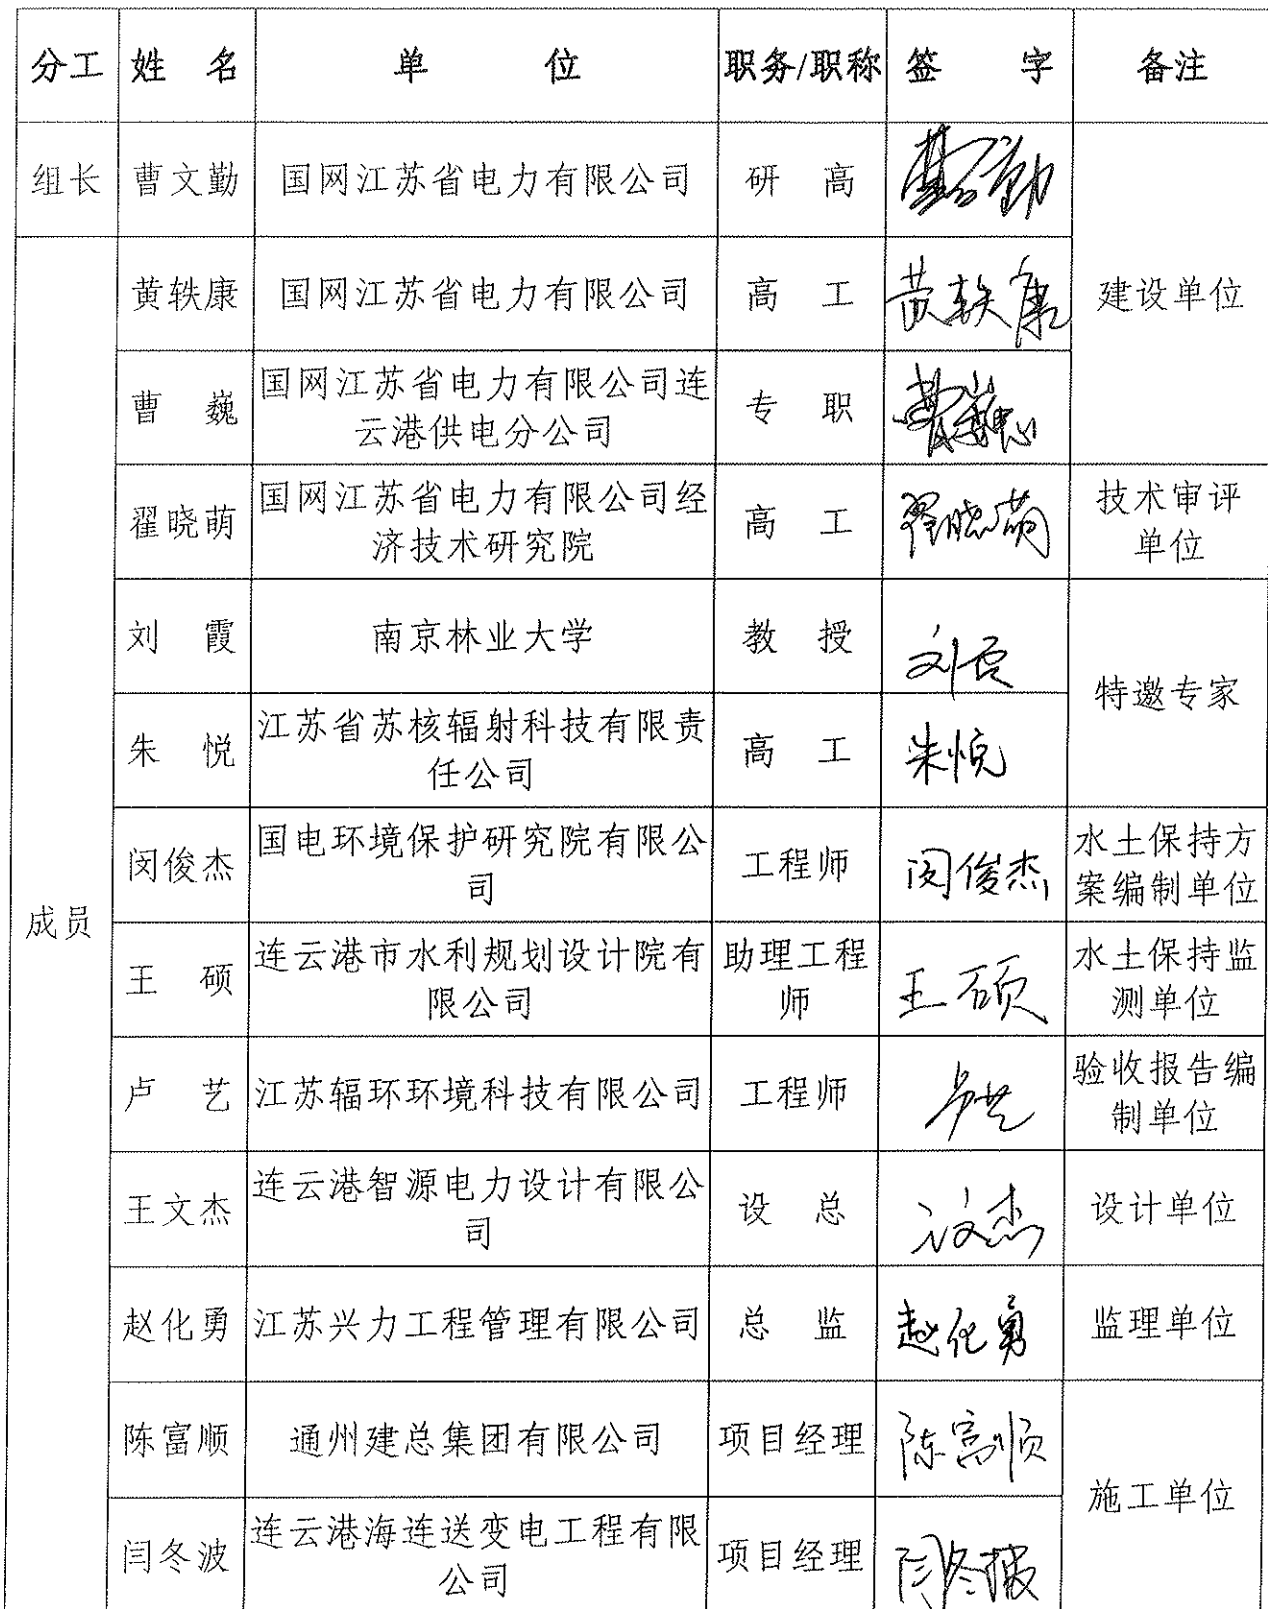 分工 姓 名 单 位 职务/职称 签 字 备注
组长 曹文勤 国网江苏省电力有限公司 研 高 曹文勤
黄轶康 国网江苏省电力有限公司 高 工 黄轶康 建设单位
曹 巍 国网江苏省电力有限公司连
云港供电分公司 专 职 曹巍
翟晓萌 国网江苏省电力有限公司经
济技术研究院 高 工 翟晓萌 技术审评
单位
刘 霞 南京林业大学 教 授 刘霞
特邀专家
朱 悦 江苏省苏核辐射科技有限责
任公司 高 工 朱悦
成员
闵俊杰 国电环境保护研究院有限公
司 工程师 闵俊杰 水土保持方
案编制单位
王 硕 连云港市水利规划设计院有
限公司 助理工程
师 王硕 水土保持监
测单位
卢 艺 江苏辐环环境科技有限公司 工程师 卢艺 验收报告编
制单位
王文杰 连云港智源电力设计有限公
司 设 总 王文杰 设计单位
赵化勇 江苏兴力工程管理有限公司 总 监 赵化勇 监理单位
陈富顺 通州建总集团有限公司 项目经理 陈富顺
施工单位
闫冬波 连云港海连送变电工程有限
公司 项目经理 闫冬波